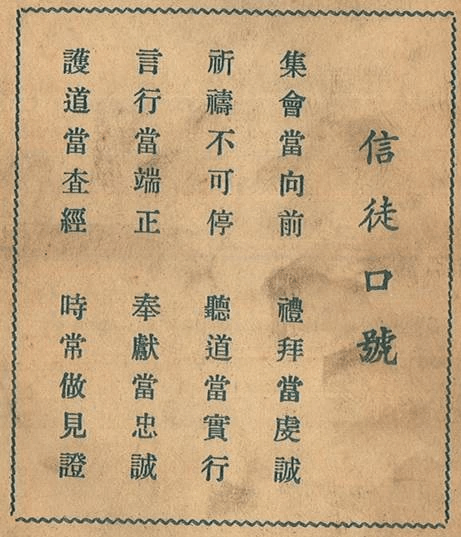 信徒口號
集會當向前 禮拜當虔誠
祈禱不可停 聽道當實行
言行當端正 奉獻當忠誠
護道當查經 時常做見證